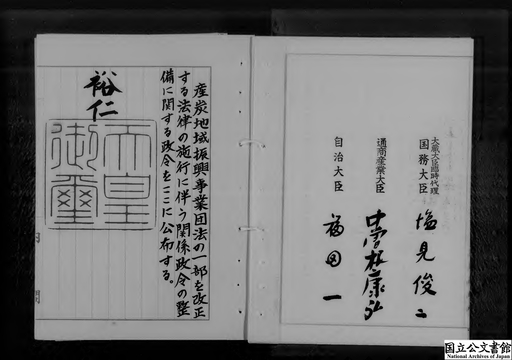 産炭地域振興事業団法の一部を改正
する法律の施行に伴う関係政令の整
備に関する政令をここに公布する。
裕仁
天皇
御璽
大蔵大臣臨時代理
国務大臣 塩見俊二
通商産業大臣 中曽根康弘
自治大臣 福田一
国立公文書館
National Archives of Japan